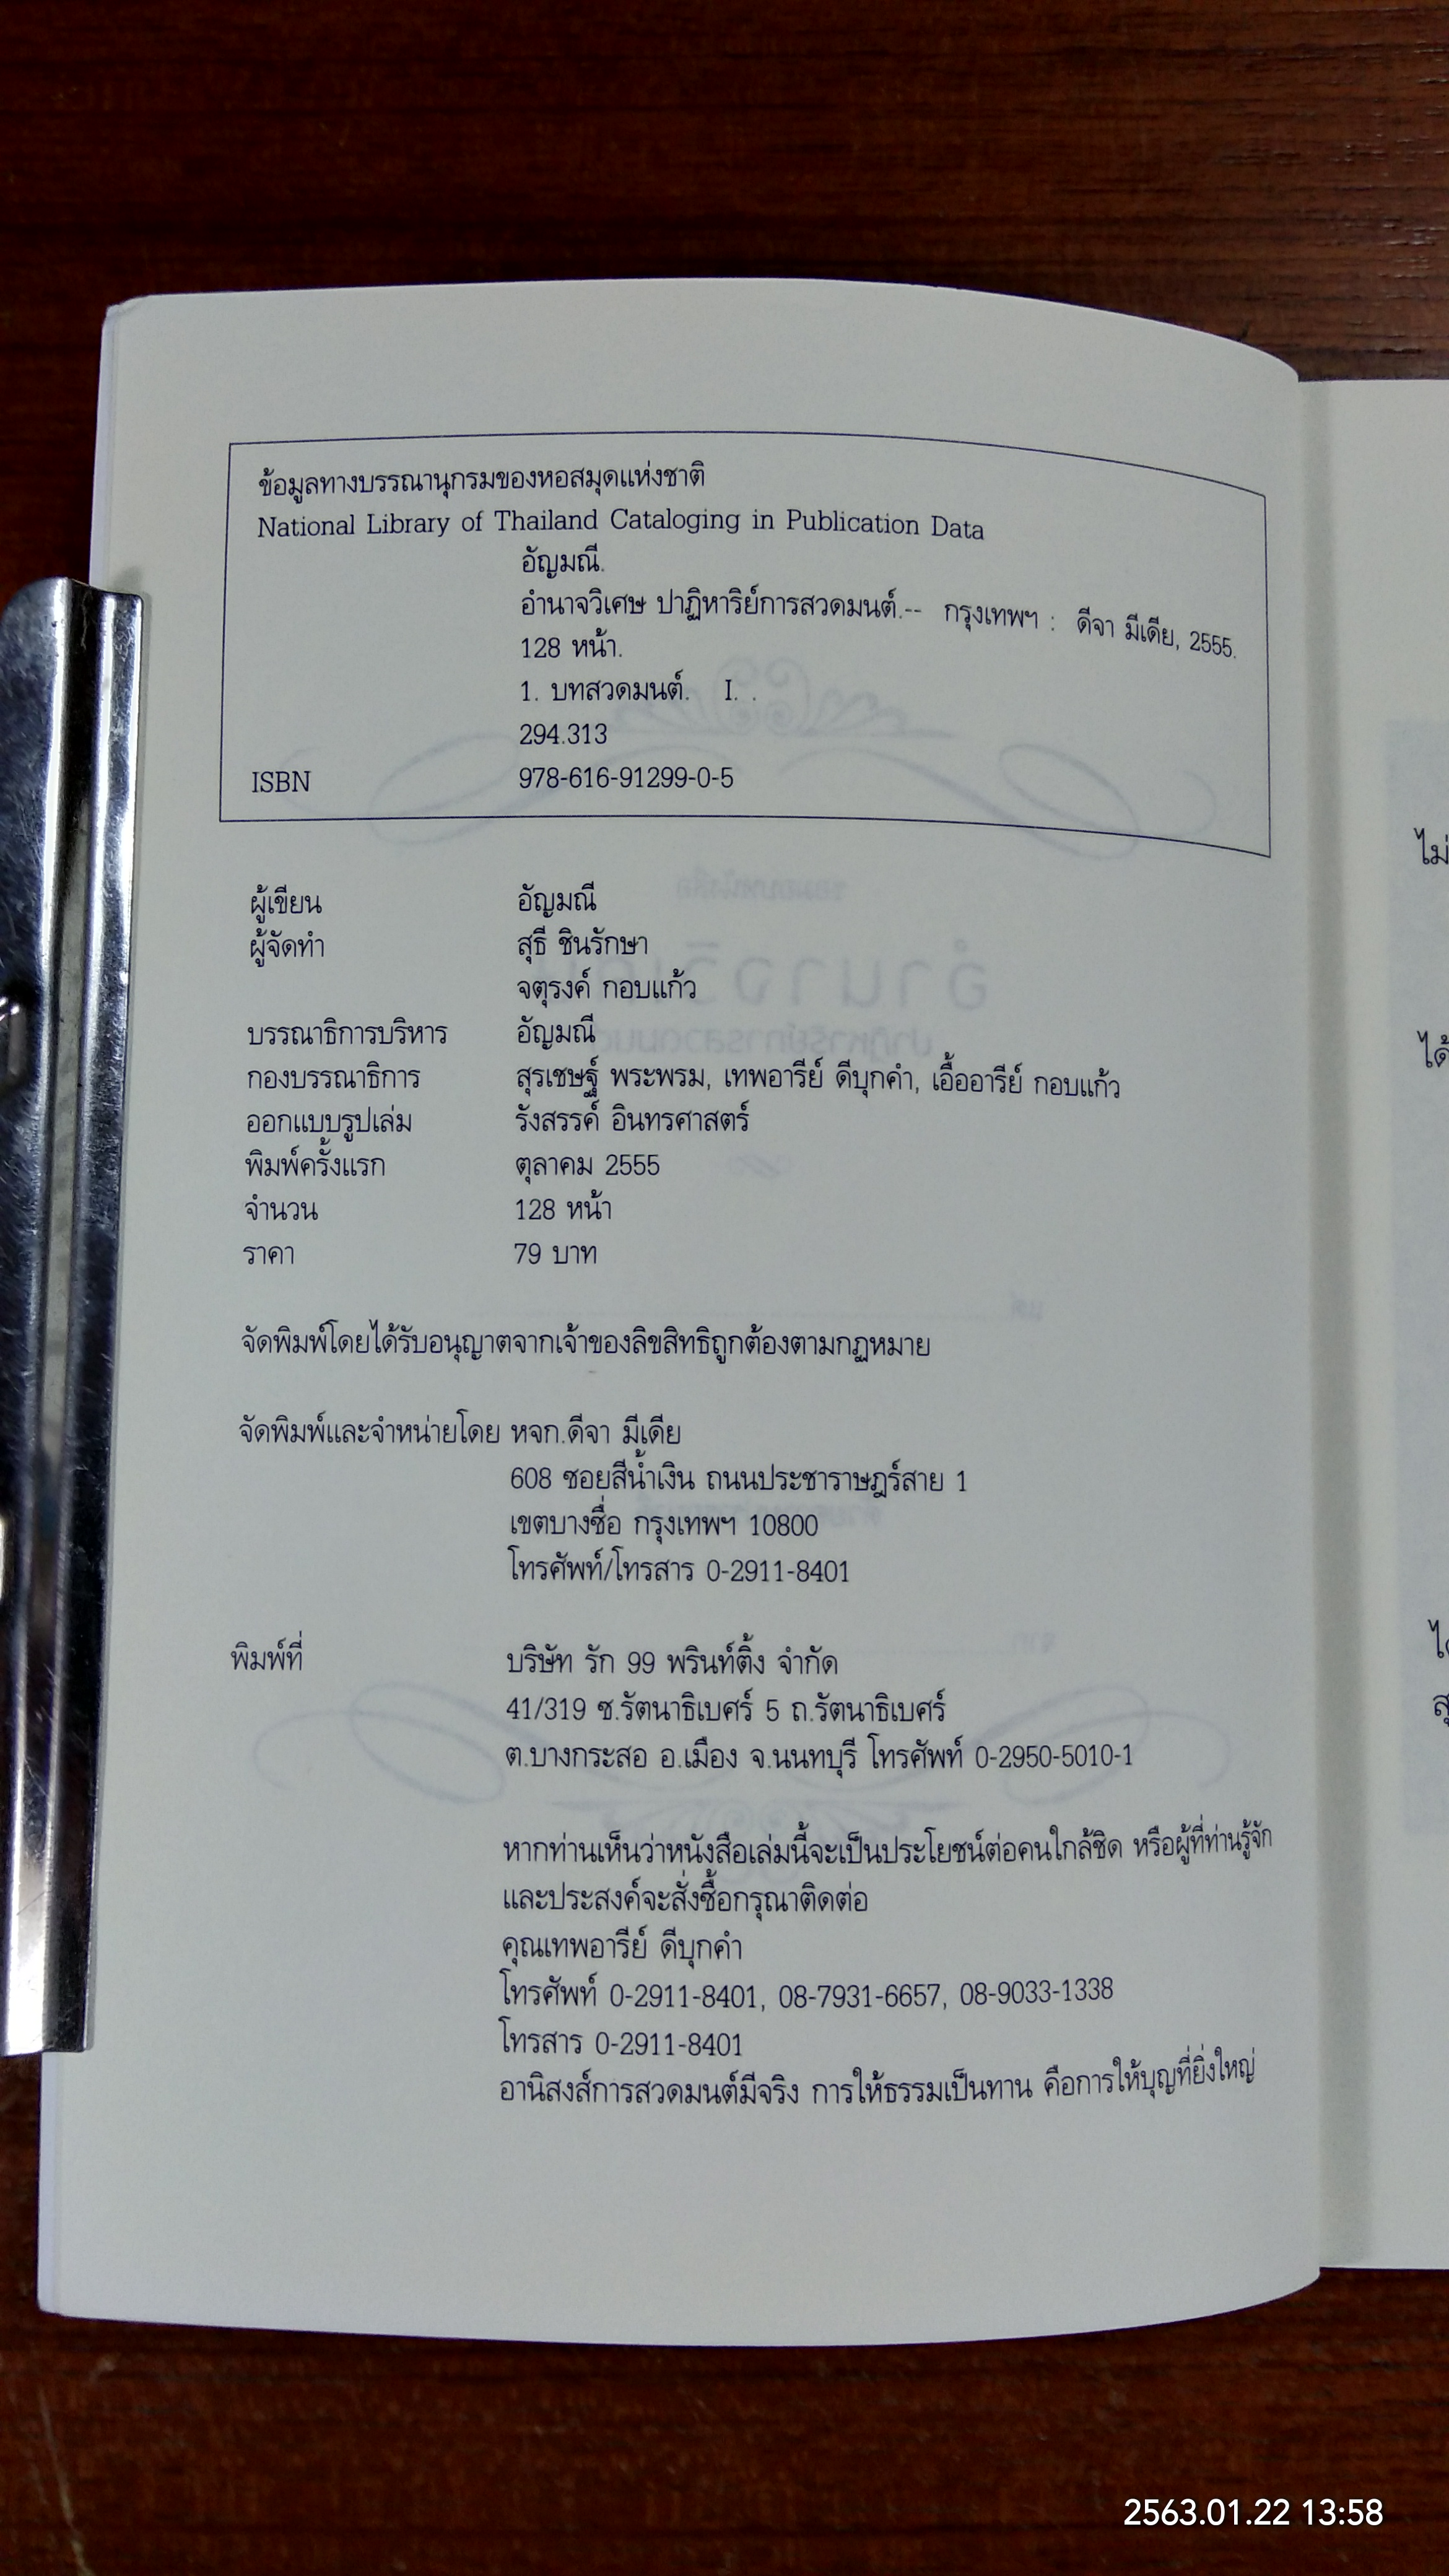 ข้อมูลทางบรรณานุกรมของหอสมุดแห่งชาติ
National Library of Thailand Cataloging in Publication Data
อัญมณี.
อำนาจวิเศษ ปาฏิหาริย์การสวดมนต์.-- กรุงเทพฯ : ดีจา มีเดีย, 2555.
128 หน้า.
1. บทสวดมนต์. I. .
294.313
ISBN 978-616-91299-0-5
ผู้เขียน อัญมณี
ผู้จัดทำ สุธี ชินรักษา
จตุรงค์ กอบแก้ว
บรรณาธิการบริหาร อัญมณี
กองบรรณาธิการ สุรเชษฐ์ พระพรม, เทพอารีย์ ดีบุกคำ, เอื้ออารีย์ กอบแก้ว
ออกแบบรูปเล่ม รังสรรค์ อินทรศาสตร์
พิมพ์ครั้งแรก ตุลาคม 2555
จำนวน 128 หน้า
ราคา 79 บาท
จัดพิมพ์โดยได้รับอนุญาตจากเจ้าของลิขสิทธิถูกต้องตามกฏหมาย
จัดพิมพ์และจำหน่ายโดย หจก.ดีจา มีเดีย
608 ซอยสีน้ำเงิน ถนนประชาราษฎร์สาย 1
เขตบางซื่อ กรุงเทพฯ 10800
โทรศัพท์/โทรสาร 0-2911-8401
พิมพ์ที่ บริษัท รัก 99 พรินท์ติ้ง จำกัด
41/319 ซ.รัตนาธิเบศร์ 5 ถ.รัตนาธิเบศร์
ต.บางกระสอ อ.เมือง จ.นนทบุรี โทรศัพท์ 0-2950-5010-1
หากท่านเห็นว่าหนังสือเล่มนี้จะเป็นประโยชน์ต่อคนใกล้ชิด หรือผู้ที่ท่านรู้จัก
และประสงค์จะสั่งซื้อกรุณาติดต่อ
คุณเทพอารีย์ ดีบุกคำ
โทรศัพท์ 0-2911-8401, 08-7931-6657, 08-9033-1338
โทรสาร 0-2911-8401
อานิสงส์การสวดมนต์มีจริง การให้ธรรมเป็นทาน คือการให้บุญที่ยิ่งใหญ่
ไม่
ได้
2563.01.22 13:58